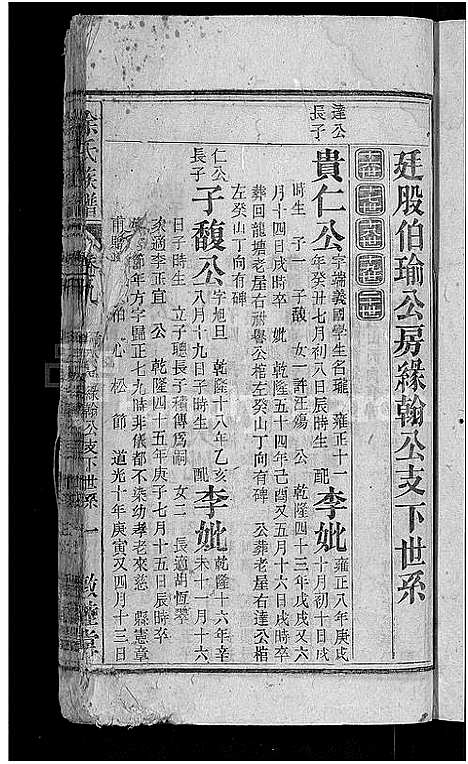 廷股伯瑜公房緣翰公支下世系
達公
長子
貴仁公
字端義國學生名瓏 雍正十一
年癸丑七月初八日辰時生 配
李妣
雍正八年庚戌
十月初十日戌
時生 子一 子馥 女一許汪瑒 公 乾隆四十三年戊戌又六
月十四日戌時卒 妣 乾隆五十四年己酉又五月十六日戌時卒
葬回龍塘老屋右 公棺左癸山丁向有碑 公葬老屋右達公棺
左癸山丁向有碑
仁公
長子
子馥公
字旭旦 乾隆十八年乙亥
八月十九日子時生 配
李妣
乾隆十六年辛
未十一月十六
日子時生 立子聰長子積傳爲嗣 女二 長適胡恆攀
次適李正宜 公 乾隆四十五年庚子七月十五日辰時卒
年方字歸正七九時非儀都不染幼孝老來慈 縣憲章
柏心松節 道光十年庚寅又四月十三日
余氏族譜 卷九 緣翰公支下世系 一